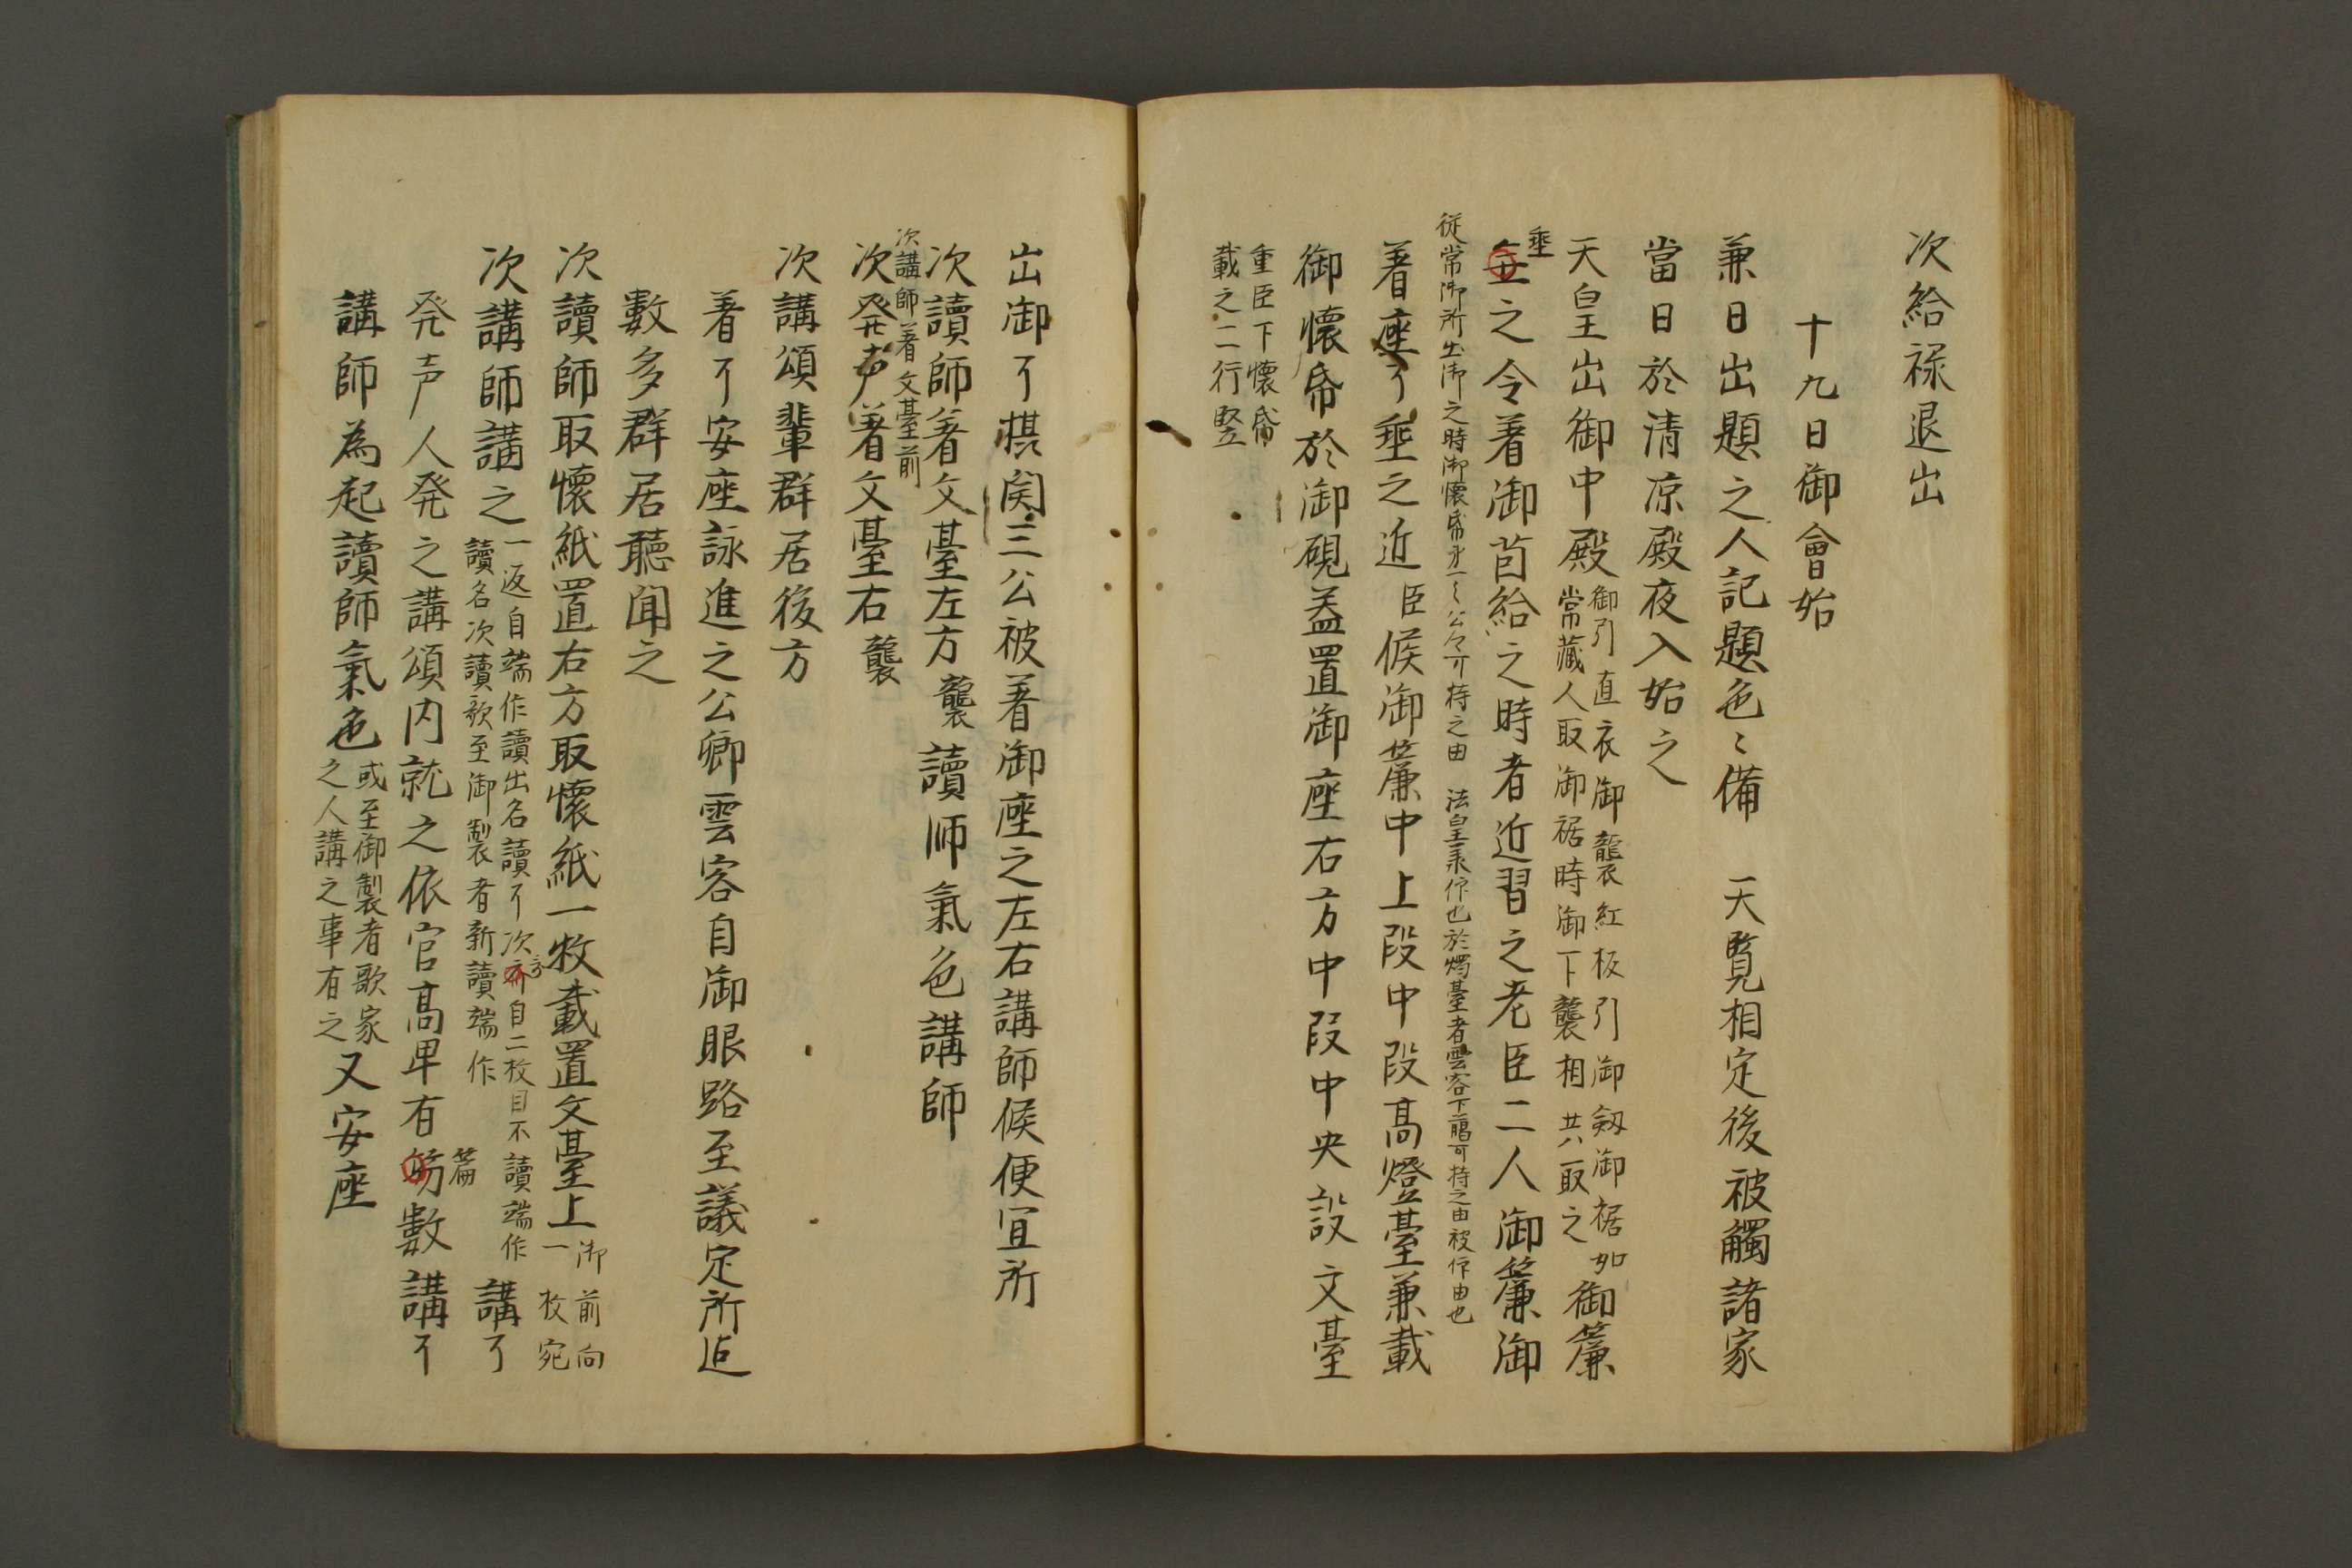 次給禄退出
十九日御會始
兼日出題之人記題色〻備　天覧相定後被觸諸家
當日於清凉殿夜入始之
天皇出御中殿御引直衣御襲紅板引御剱御裾如
常藏人取御裾時御下襲相共取之御簾
垂
垂之令著御茵給之時者近習之老臣二人御簾御
從常御所出御之時御懐帋
公可持之由　法皇
也於燭臺者雲客下臈可持之由被作由也
著座了垂之近臣候御簾中上段中段高燈臺兼載
御懐帋於御硯盖置御座右方中段中央設文臺
重臣下懐帋
載之二行竪
出御了摂関三公被著御座之左右講師候便宜所
次讀師著文臺左方襲讀師氣色講師
次講師著文臺前
次発声著文臺右襲
次講頌輩群居後方
著了安座詠進之公卿雲客自御眼路至議定所迠
數多群居聽聞之
次讀師取懐紙置右方取懐紙一枚載置文臺上御前向
一枚宛
次講師講之一返自端作讀出名讀了次自二枚目不讀端作
讀名次讀歌至御製者新讀端作講了
発声人発之講頌内就之依官高卑有數講了
篇
講師為起讀師氣色或至御製者歌家
之人講之事有之又安座